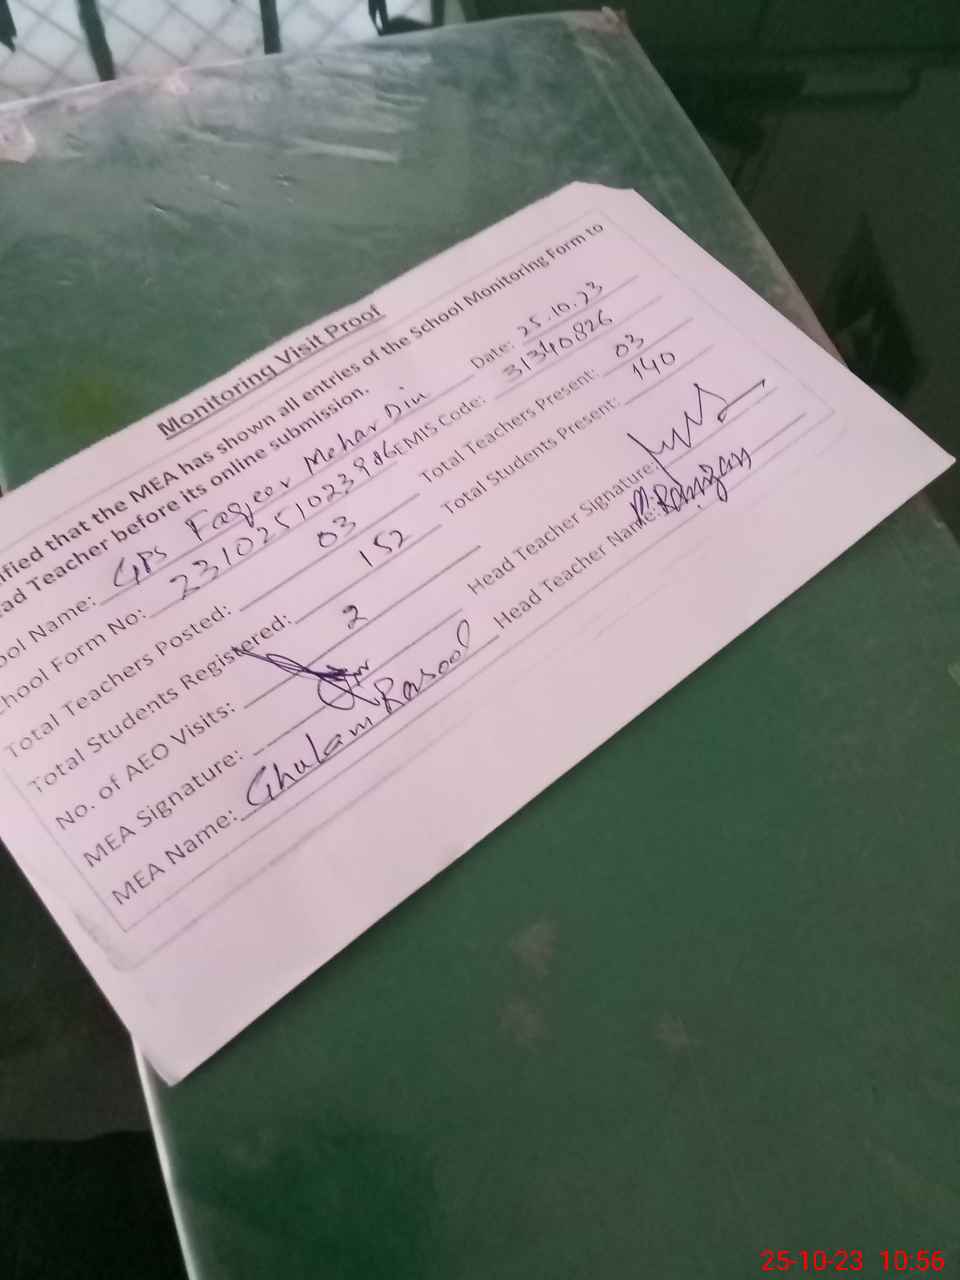 Monitoring Visit Proof
ified that the MEA has shown all entries of the School Monitoring Form to
ad Teacher before its online submission.
ool Name: GPS Faqeer Mehar Din Date: 25.10.23
chool Form No: 2310251023986 EMIS Code: 31340826
Total Teachers Posted: 03 Total Teachers Present: 03
Total Students Registered: 152 Total Students Present: 140
No. of AEO Visits: 2
MEA Signature: Head Teacher Signature:
MEA Name: Ghulam Rasool Head Teacher Name: M. Ramzan
25-10-23 10:56